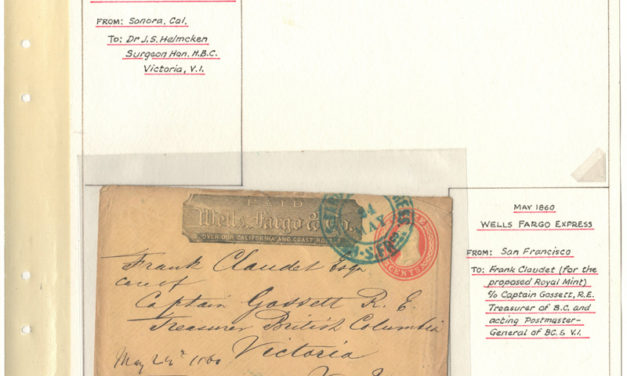 FROM: Sonora, Cal.
TO: Dr J.S. Helmcken
Surgeon Hon. H.B.C.
Victoria, V.I.
PAID
Wells, Fargo & Co.
OVER OUR CALIFORNIA AND COAST ROUTES
24
MAY
CENTS
Frank Claudet Esqr
care of
Captain Gossett R. E.
Treasurer British Columbia
Victoria
May 24th 1860
MAY 1860
WELLS FARGO EXPRESS
FROM: San Francisco
TO: Frank Claudet (for the
proposed Royal Mint)
c/o Captain Gossett, R.E.
Treasurer of B.C. and
acting Postmaster-
General of BC. & V.I.